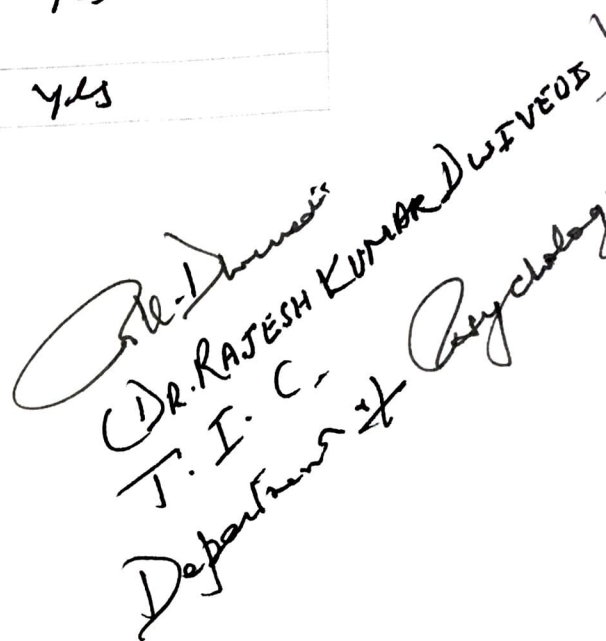 yes
R.K. Dwivedi
(DR. RAJESH KUMAR DWIVEDI)
T. I. C.
Department of Psycholog